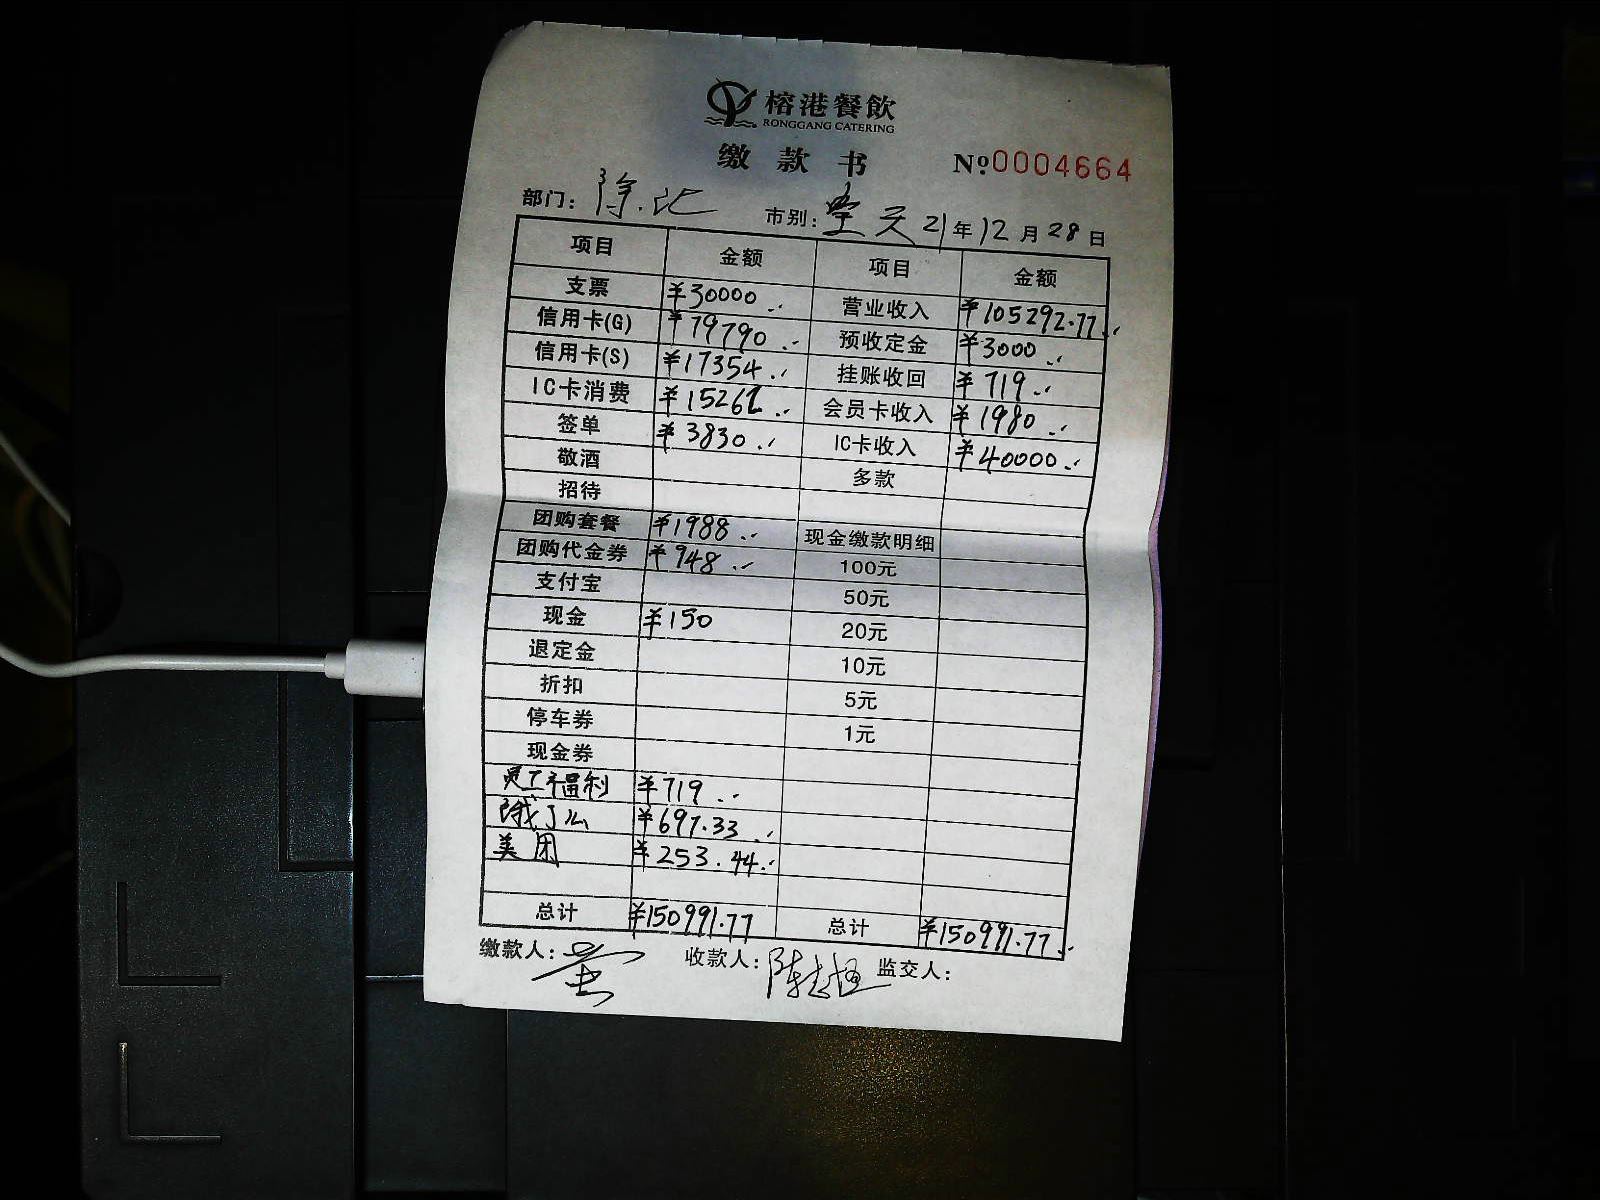 榕港餐飲
RONGGANG CATERING
缴款书 №0004664
部门: 徐记 市别: 全天 21年12月28日
项目 金额 项目 金额
支票 ¥30000.- 营业收入 ¥105292.77.-
信用卡(G) ¥79790.- 预收定金 ¥3000.-
信用卡(S) ¥17354.- 挂账收回 ¥719.-
IC卡消费 ¥15262.- 会员卡收入 ¥1980.-
签单 ¥3830.- IC卡收入 ¥40000.-
敬酒 多款
招待
团购套餐 ¥1988.- 现金缴款明细
团购代金券 ¥948.- 100元
支付宝 50元
现金 ¥150 20元
退定金 10元
折扣 5元
停车券 1元
现金券
员工福利 ¥719.-
饿了么 ¥697.33.-
美团 ¥253.44.-
总计 ¥150991.77 总计 ¥150991.77.-
缴款人: 收款人: 监交人: